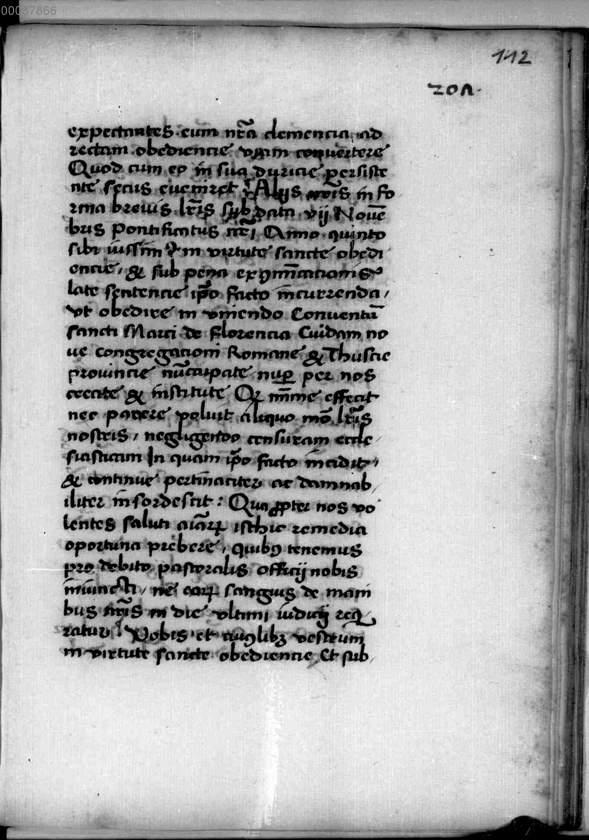 00087866
112
201.
expectantes eum nr̃a clemencia, ad
rectam obediencie viam convertere
Quod cum eo in sua duricie persiste
nte secus eveniret Alijs nr̃is in fo
rma brevis lr̃is sub data vij Novẽ
bris pontificatus nr̃i Anno quinto
sibi iussim9 in virtute sancte obedi
encie, & sub pena excõmunicationis
late sentencie ip̃o facto incurrenda,
ut obedire in uniendo Conventũ
sancti Marci de florencia Cuidam no
ve congregationi Romane & Thuscie
provincie nũcupate nup̱ per nos
erecte & institute Qd̃ minime effecit
nec parere voluit aliquo mõ lr̃is
nostris, negligendo censuram eccle
siasticam In quam ip̃o facto incidit,
& continue pertinaciter ac damnab
iliter insordescit: Qua ꝓpter nos vo
lentes saluti aĩarꝝ isthic remedia
oportuna prebere, quibꝰ tenemus
pro debito pastoralis officij nobis
iniuncti, ne earꝝ sangius de mani
bus nr̃is in die ultimi iudicij req
ratur, Vobis et cuiqlibꝫ vestrum
in virtute sancte obediencie, Et sub